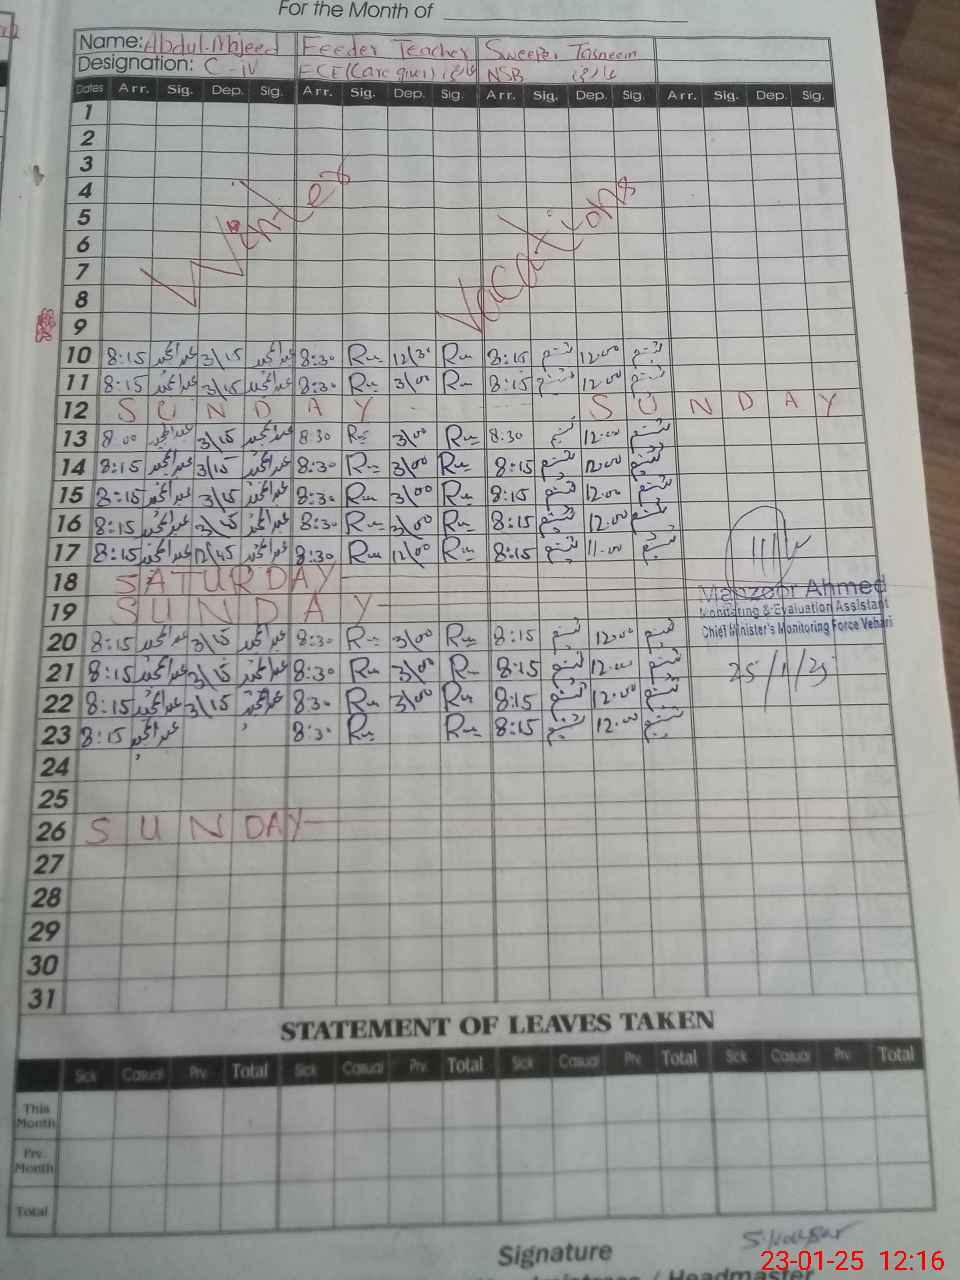 For the Month of
Name: Abdul-Majeed Feeder Teacher Sweeper Tasneem
Designation: C-IV ECE (Care giver) عارضی NSB عارضی
Dates Arr. Sig. Dep. Sig. Arr. Sig. Dep. Sig. Arr. Sig. Dep. Sig. Arr. Sig. Dep. Sig.
1
2
3
4
5
6
7
8
9
Winter Vacations
10 8:15 عبدالمجید 3/15 عبدالمجید 8:30 Ru 12/30 Ru 8:15 تسنیم 12:00 تسنیم
11 8:15 عبدالمجید 3/15 عبدالمجید 8:30 Ru 3/00 Ru 8:15 تسنیم 12:00 تسنیم
12 S U N D A Y S U N D A Y
13 8:00 عبدالمجید 3/15 عبدالمجید 8:30 Ru 3/00 Ru 8:30 تسنیم 12:00 تسنیم
14 8:15 عبدالمجید 3/15 عبدالمجید 8:30 Ru 3/00 Ru 8:15 تسنیم 12:00 تسنیم
15 8:15 عبدالمجید 3/15 عبدالمجید 8:30 Ru 3/00 Ru 8:15 تسنیم 12:00 تسنیم
16 8:15 عبدالمجید 3/15 عبدالمجید 8:30 Ru 3/00 Ru 8:15 تسنیم 12:00 تسنیم
17 8:15 عبدالمجید 12/45 عبدالمجید 8:30 Ru 12/00 Ru 8:15 تسنیم 11:00 تسنیم
18 SATURDAY
19 S U N D A Y
Manzoor Ahmed
Monitoring & Evaluation Assistant
Chief Minister's Monitoring Force Vehari
20 8:15 عبدالمجید 3/15 عبدالمجید 8:30 Ru 3/00 Ru 8:15 تسنیم 12:00 تسنیم
21 8:15 عبدالمجید 3/15 عبدالمجید 8:30 Ru 3/00 Ru 8:15 تسنیم 12:00 تسنیم
22 8:15 عبدالمجید 3/15 عبدالمجید 8:30 Ru 3/00 Ru 8:15 تسنیم 12:00 تسنیم
23 8:15 عبدالمجید 8:30 Ru Ru 8:15 تسنیم 12:00 تسنیم
24
25
26 S U N DAY
27
28
29
30
31
STATEMENT OF LEAVES TAKEN
Sick Casual Prv. Total Sick Casual Prv. Total Sick Casual Prv. Total Sick Casual Prv. Total
This Month
Prv. Month
Total
Signature
/ Headmaster
23-01-25 12:16